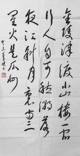 金陵津渡小山楼一宿
行人自可愁潮落
夜江斜月里两三
星火是瓜洲